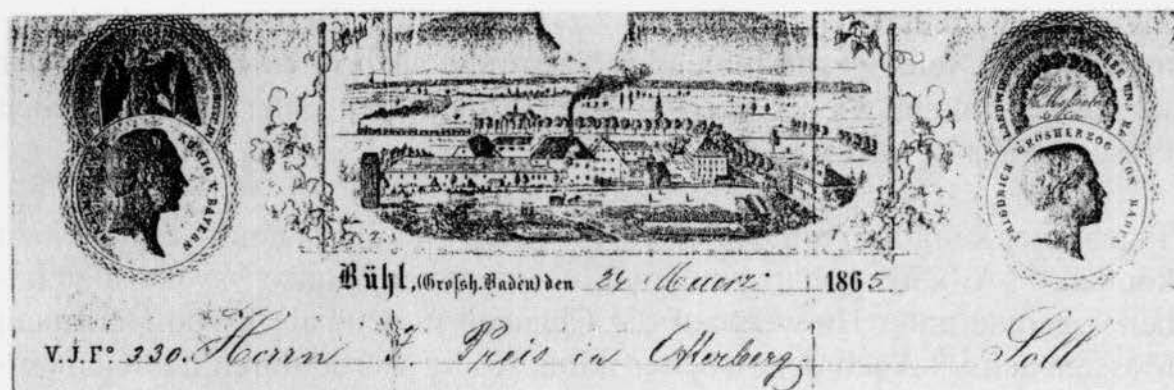 KÖNIG V. BAYERN
FRIEDRICH GROSHERZOG VON BADEN
Bühl, (Grosh. Baden) den 24 Maerz 1865
V. J. Fº 330. Herrn J. Preis in Otterberg Soll